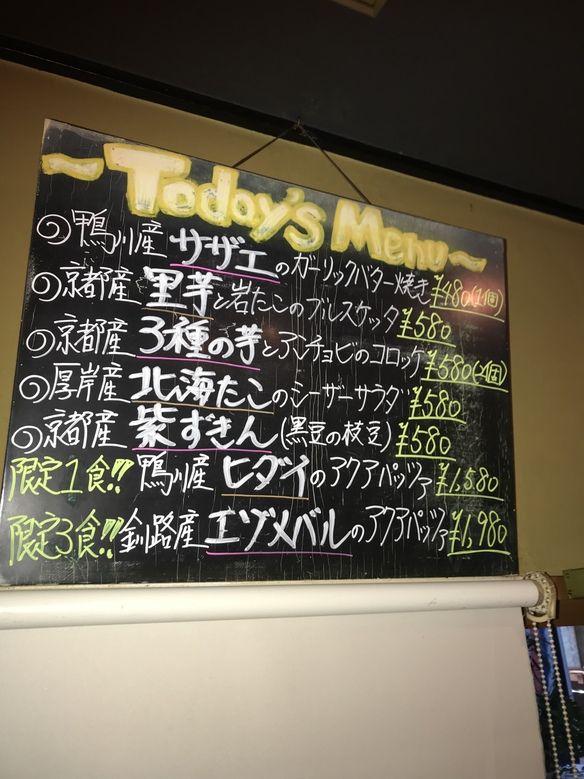 ~Today's Menu~
鴨川産 サザエのガーリックバター焼き ¥480(1個)
京都産 里芋と岩たこのブルスケッタ ¥580
京都産 3種の芋とアンチョビのコロッケ ¥580(2個)
厚岸産 北海たこのシーザーサラダ ¥580
京都産 紫ずきん(黒豆の枝豆) ¥580
限定1食!! 鴨川産 ヒダイのアクアパッツァ ¥1,580
限定3食!! 釧路産 エゾメバルのアクアパッツァ ¥1,980